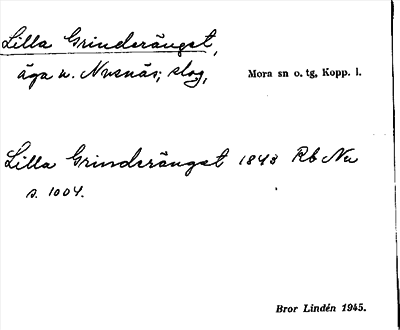 Lilla Grindsränget,
äga n. Nusnäs; skog,
Mora sn o. tg, Kopp. l.
Lilla Grindsränget 1843 Rb Nu
s. 1004.
Bror Lindén 1945.